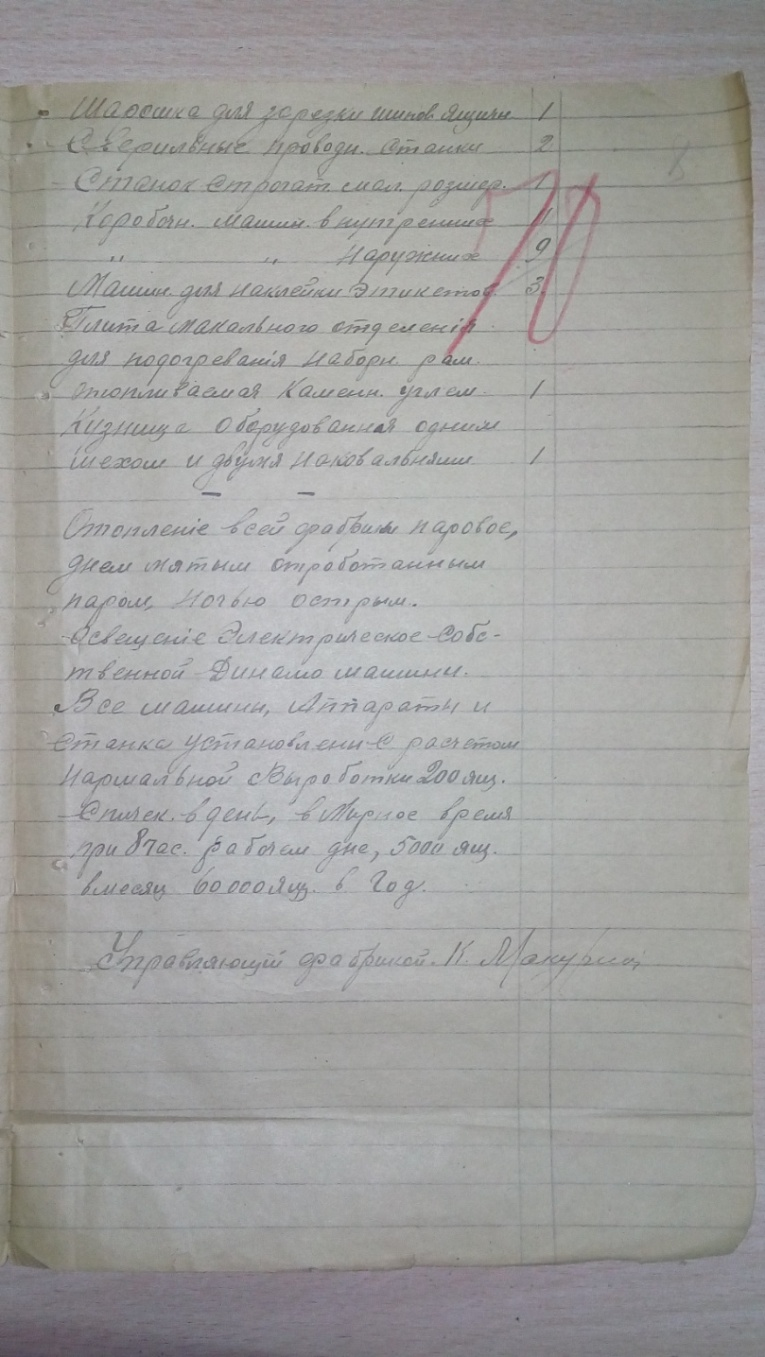 для зарезки шипов ящичн 1
Сверильные проводн. станки 2
Станок Строгат. мал. розмер. 1
Коробочн. машин. внутренних 11
" " наружних 9
Машин. для наклейки этикетов 3.
Плита макального отделенія
для подогреванія наборн. рам.
отопливаемая Каменн. углем. 1
Кузница Оборудованная одним
мехом и двумя наковальнями 1
Отопленіе всей фабрики паровое,
днем мятым отработанным
паром, ночью острым.
Освещеніе Электрическое Собс-
твенной Динамо машины.
Все машины, Аппараты и
станки установлены С расчетом
Нармальной Выроботки 200 ящ.
Спичек. в день, в Мирное время
при 8 час. рабочем дне, 5000 ящ.
вмесяц 60000 ящ. в Год.
Управляющій фабрикой. К.
70